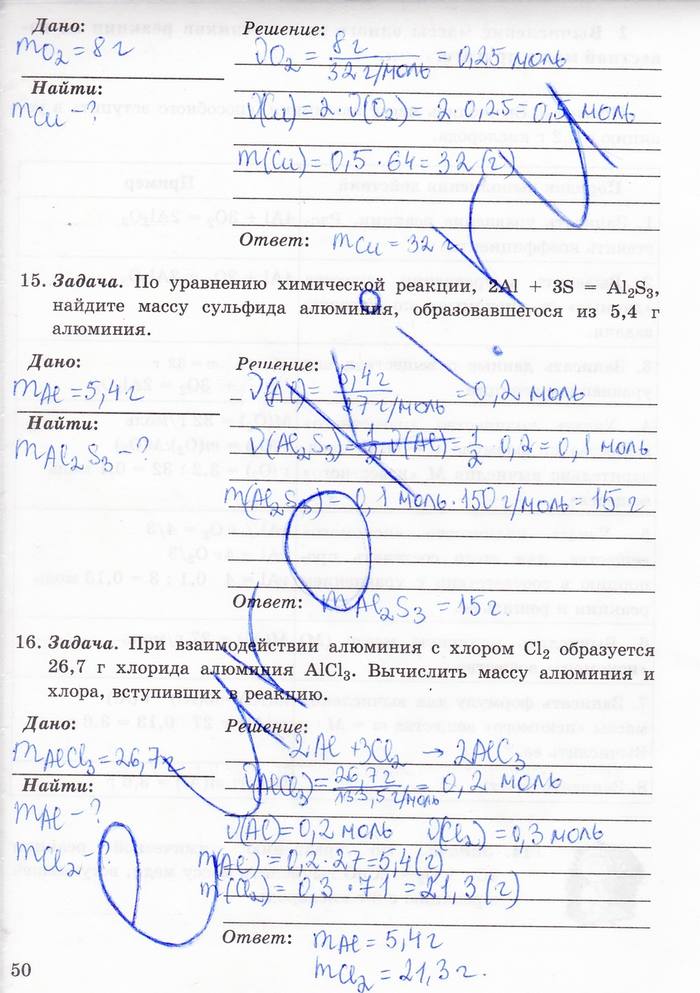 Дано:
Решение:
mO₂ = 8 г
νO₂ = 8 г / 32 г/моль = 0,25 моль
Найти:
mCu – ?
ν(Cu) = 2 · ν(O₂) = 2 · 0,25 = 0,5 моль
m(Cu) = 0,5 · 64 = 32 (г)
Ответ: mCu = 32 г.
15. Задача. По уравнению химической реакции, 2Al + 3S = Al₂S₃,
найдите массу сульфида алюминия, образовавшегося из 5,4 г
алюминия.
Дано:
Решение:
mAl = 5,4 г
ν(Al) = 5,4 г / 27 г/моль = 0,2 моль
Найти:
mAl₂S₃ – ?
ν(Al₂S₃) = 1/2 ν(Al) = 1/2 · 0,2 = 0,1 моль
m(Al₂S₃) = 0,1 моль · 150 г/моль = 15 г
Ответ: mAl₂S₃ = 15 г.
16. Задача. При взаимодействии алюминия с хлором Cl₂ образуется
26,7 г хлорида алюминия AlCl₃. Вычислить массу алюминия и
хлора, вступивших в реакцию.
Дано:
Решение:
mAlCl₃ = 26,7 г
2Al + 3Cl₂ → 2AlCl₃
Найти:
ν(AlCl₃) = 26,7 г / 133,5 г/моль = 0,2 моль
mAl – ?
ν(Al) = 0,2 моль ν(Cl₂) = 0,3 моль
mCl₂ ?
m(Al) = 0,2 · 27 = 5,4 (г)
m(Cl₂) = 0,3 · 71 = 21,3 (г)
Ответ: mAl = 5,4 г
mCl₂ = 21,3 г.
50